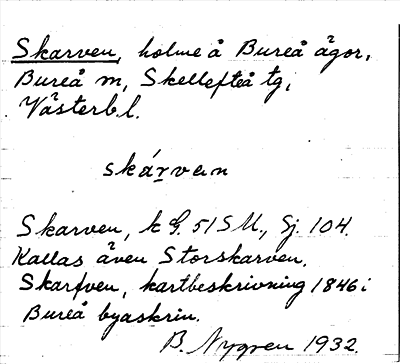 Skarven, holme å Bureå ägor,
Bureå m, Skellefteå tg,
Västerb.l.
skárvan
Skarven, k G. 51 S.U., Sj. 104.
Kallas även Storskarven.
Skarfven, kartbeskrivning 1846 i
Bureå byaskrin.
B. Nygren 1932.